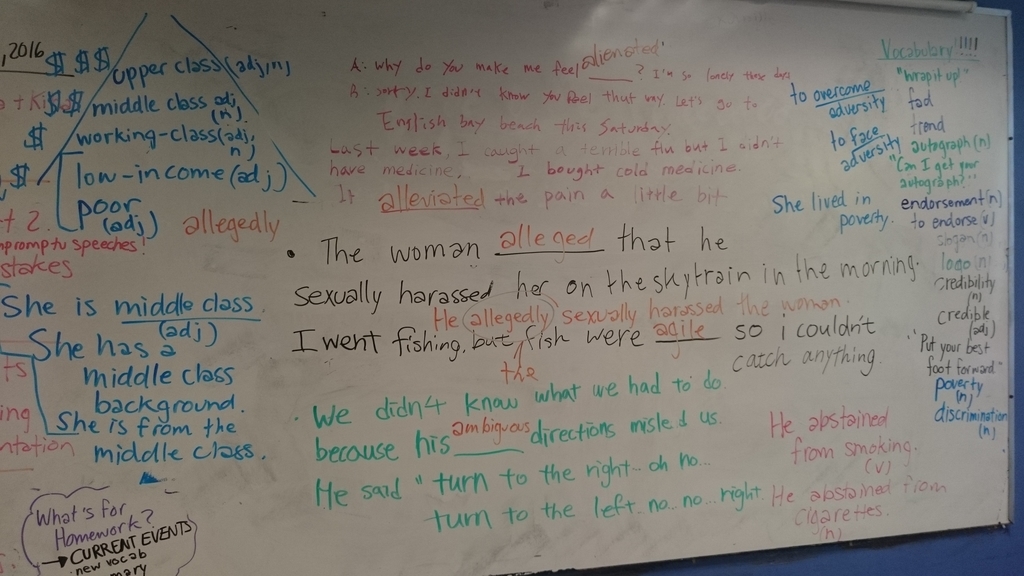 , 2016
$ $ $ upper class (adj, n)
$ $ middle class (adj, n).
$ working-class (adj, n)
$ low-income (adj)
poor (adj)
t 2.
allegedly
mpromptu speeches!
stakes
She is middle class.
(adj)
She has a
middle class
background.
She is from the
middle class.
ts
ing
ntation
What's for
Homework?
→ CURRENT EVENTS
new vocab
mary
A: Why do you make me feel alienated? I'm so lonely these days
B: sorry. I didn't know you feel that way. Let's go to
English bay beach this Saturday.
Last week, I caught a terrible flu but I didn't
have medicine, I bought cold medicine.
It alleviated the pain a little bit
• The woman alleged that he
sexually harassed her on the skytrain in the morning.
He allegedly sexually harassed the woman.
I went fishing, but fish were agile so i couldn't
the
catch anything.
• We didn't know what we had to do.
because his ambiguous directions misled us.
He said "turn to the right... oh no...
turn to the left no... no... right.
He abstained
from smoking.
(v)
He abstained from
cigarettes.
(n)
to overcome
adversity
to face
adversity
She lived in
poverty.
Vocabulary!!!!
"Wrap it up!"
fad
trend
autograph (n)
"Can I get your
autograph?"
endorsement (n)
to endorse (v)
slogan (n)
logo (n)
credibility
(n)
credible
(adj)
"Put your best
foot forward"
poverty
(n)
discrimination
(n)